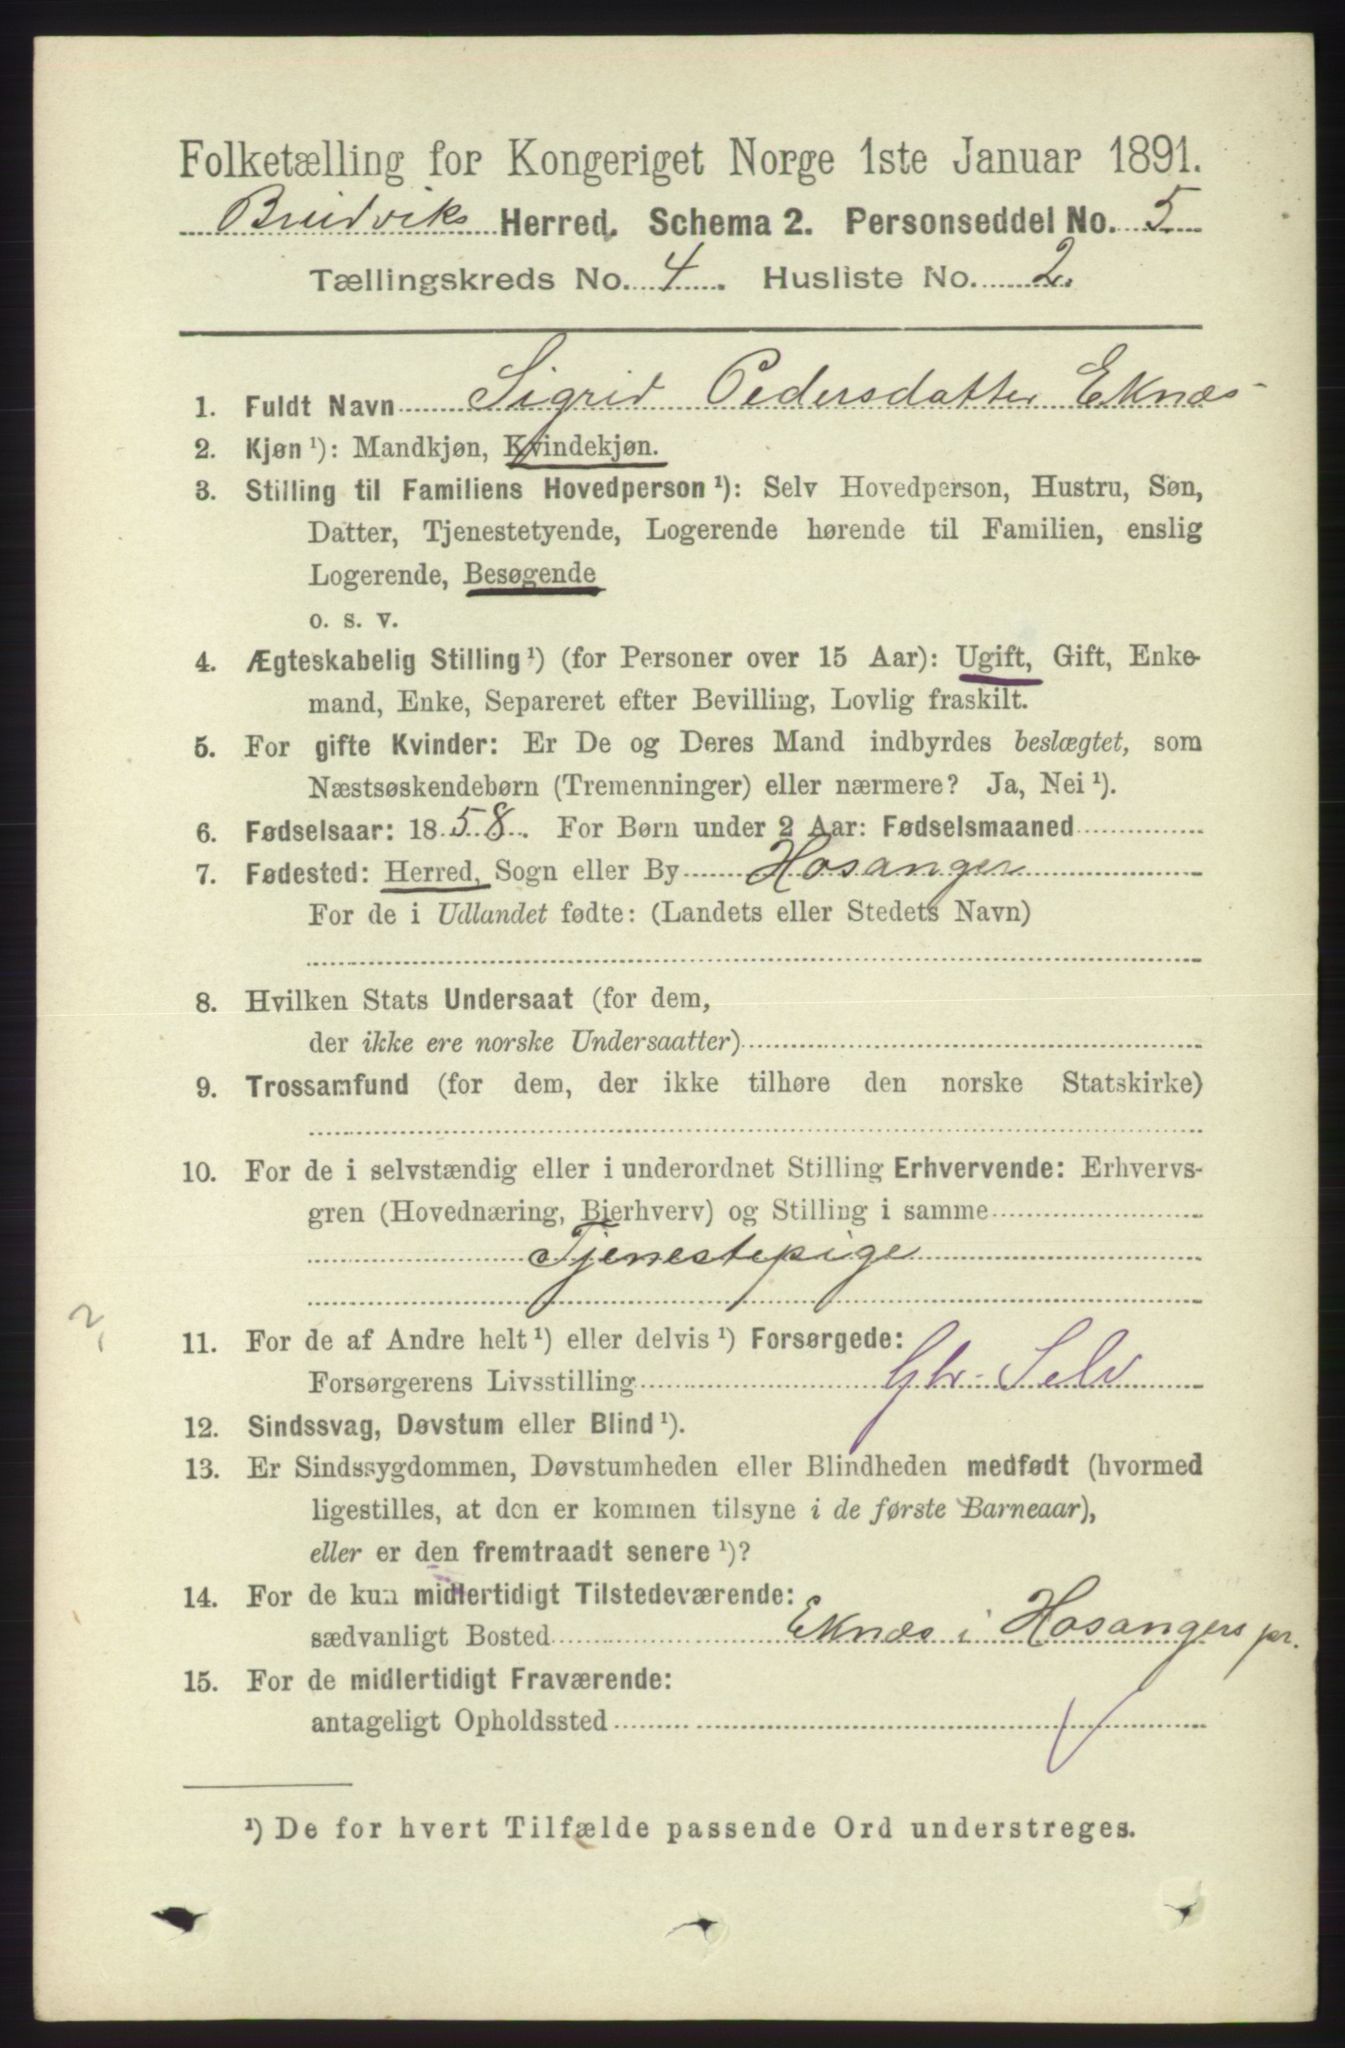 Folketælling for Kongeriget Norge 1ste Januar 1891.
Bruviks Herred. Schema 2. Personseddel No. 5
Tællingskreds No. 4. Husliste No. 2.
1. Fuldt Navn Sigrid Pedersdatter Eknæs
2. Kjøn ¹): Mandkjøn, Kvindekjøn.
3. Stilling til Familiens Hovedperson ¹): Selv Hovedperson, Hustru, Søn,
Datter, Tjenestetyende, Logerende hørende til Familien, enslig
Logerende, Besøgende
o. s. v.
4. Ægteskabelig Stilling ¹) (for Personer over 15 Aar): Ugift, Gift, Enke-
mand, Enke, Separeret efter Bevilling, Lovlig fraskilt.
5. For gifte Kvinder: Er De og Deres Mand indbyrdes beslægtet, som
Næstsøskendebørn (Tremenninger) eller nærmere? Ja, Nei ¹).
6. Fødselsaar: 1858. For Børn under 2 Aar: Fødselsmaaned
7. Fødested: Herred, Sogn eller By Hosanger
For de i Udlandet fødte: (Landets eller Stedets Navn)
8. Hvilken Stats Undersaat (for dem,
der ikke ere norske Undersaatter)
9. Trossamfund (for dem, der ikke tilhøre den norske Statskirke)
10. For de i selvstændig eller i underordnet Stilling Erhvervende: Erhvervs-
gren (Hovednæring, Bierhverv) og Stilling i samme
Tjenestepige
11. For de af Andre helt ¹) eller delvis ¹) Forsørgede:
Forsørgerens Livsstilling Selv
12. Sindssvag, Døvstum eller Blind ¹).
13. Er Sindssygdommen, Døvstumheden eller Blindheden medfødt (hvormed
ligestilles, at den er kommen tilsyne i de første Barneaar),
eller er den fremtraadt senere ¹)?
14. For de kun midlertidigt Tilstedeværende:
sædvanligt Bosted Eknæs i Hosangers pr.
15. For de midlertidigt Fraværende:
antageligt Opholdssted
¹) De for hvert Tilfælde passende Ord understreges.